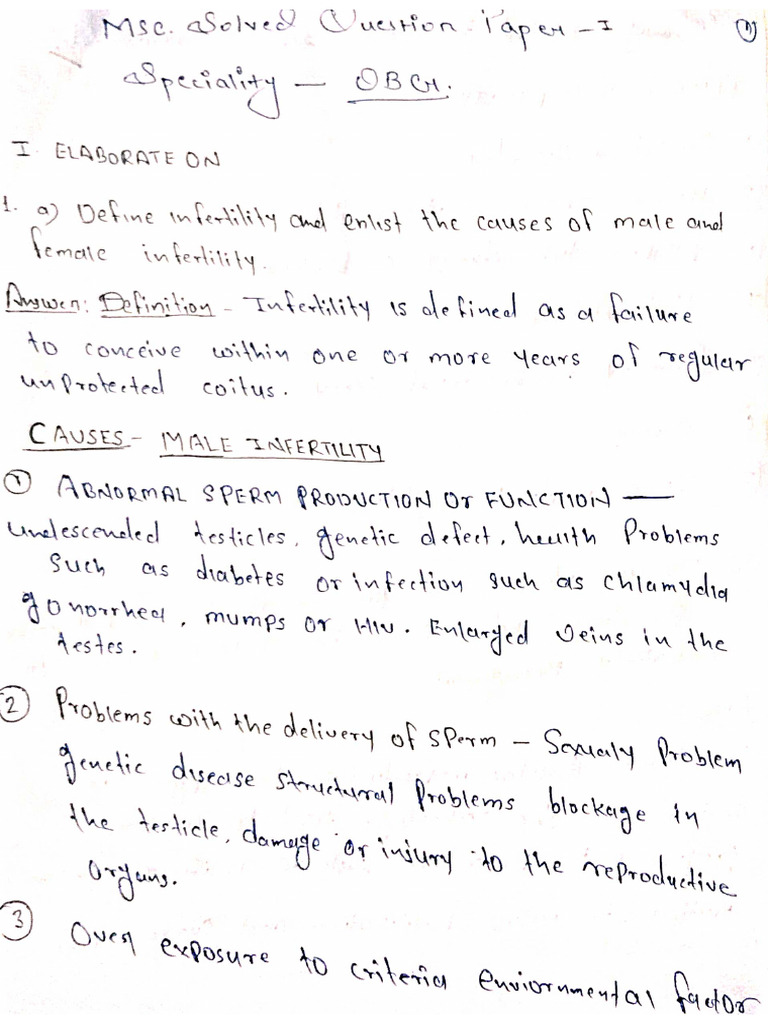 Msc. Solved Question Paper - I
(1)
Speciality - OBG.
I ELABORATE ON
1. a) Define infertility and enlist the causes of male and
female infertility.
Answer: Definition - Infertility is defined as a failure
to conceive within one or more years of regular
unprotected coitus.
CAUSES - MALE INFERTILITY
① ABNORMAL SPERM PRODUCTION Or FUNCTION —
undescended testicles, genetic defect, health Problems
Such as diabetes or infection such as chlamydia
gonorrhea, mumps or HIV. Enlarged veins in the
testes.
② Problems with the delivery of sperm - Sexualy Problem
genetic disease structural Problems blockage in
the testicle, damage or injury to the reproductive
organs.
③ Over exposure to criteria enviornmental factor